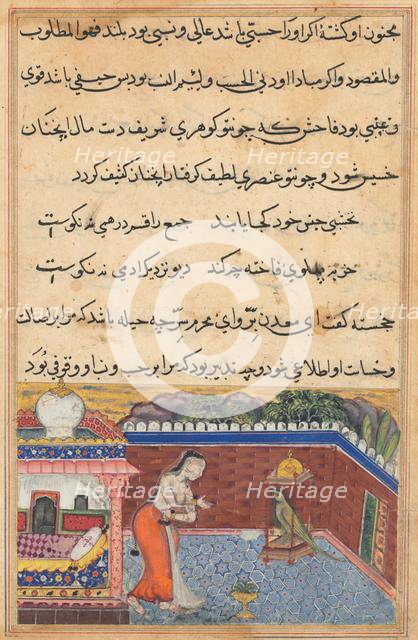 مجنون او کشته اکر اورا حسبی باشد عالی و نسبی بود بلند فهو المطلوب
والمقصود واکر مبادا او دنی الحسب ولئیم النسب بود بس حیفی باشد قوی
وعیبی بود فاحش که چونتو کوهری شریف دست مال انچنان
خسیس شود و چونتو عنصری لطیف کرفتار انچنان کثیف کردد
نخشبی جنس خود کجا یابند جمع را قم درهمی نه نکوست
خر به پهلوی فاخته چه کند دیو نزدیک ادمی نه نکوست
خجسته کفت ای معدن بر وای محرم سر چه حیله باشد که مرا بر اصالت
وخساست او اطلاعی شود وچه تدبیر بود که مرا بر حسب و نسب او وقوفی بود
Heritage
Heritage
Heritage
Heritage
Heritage
Heritage